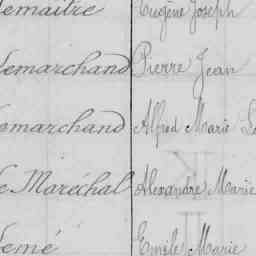 Lemaitre Eugène Joseph
Lemarchand Pierre Jean
Lemarchand Alfred Marie
Le Maréchal Alexandre Marie
Lemé Emile Marie